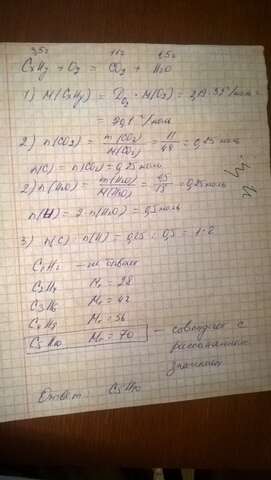 3,5г 11г 4,5г
CxHy + O2 = CO2 + H2O
1) M(CxHy) = DO2 · M(O2) = 2,19 · 32 г/моль =
= 70,1 г/моль
2) n(CO2) = m(CO2)/M(CO2) = 11/44 = 0,25 моль
n(C) = n(CO2) = 0,25 моль
2) n(H2O) = m(H2O)/M(H2O) = 4,5/18 = 0,25 моль
n(H) = 2 · n(H2O) = 0,5 моль
3) n(C) : n(H) = 0,25 : 0,5 = 1 : 2
C1H2 — не бывает
C2H4 Mr = 28
C3H6 Mr = 42
C4H8 Mr = 56
C5H10 Mr = 70 — совпадает с
значением
Ответ: C5H10